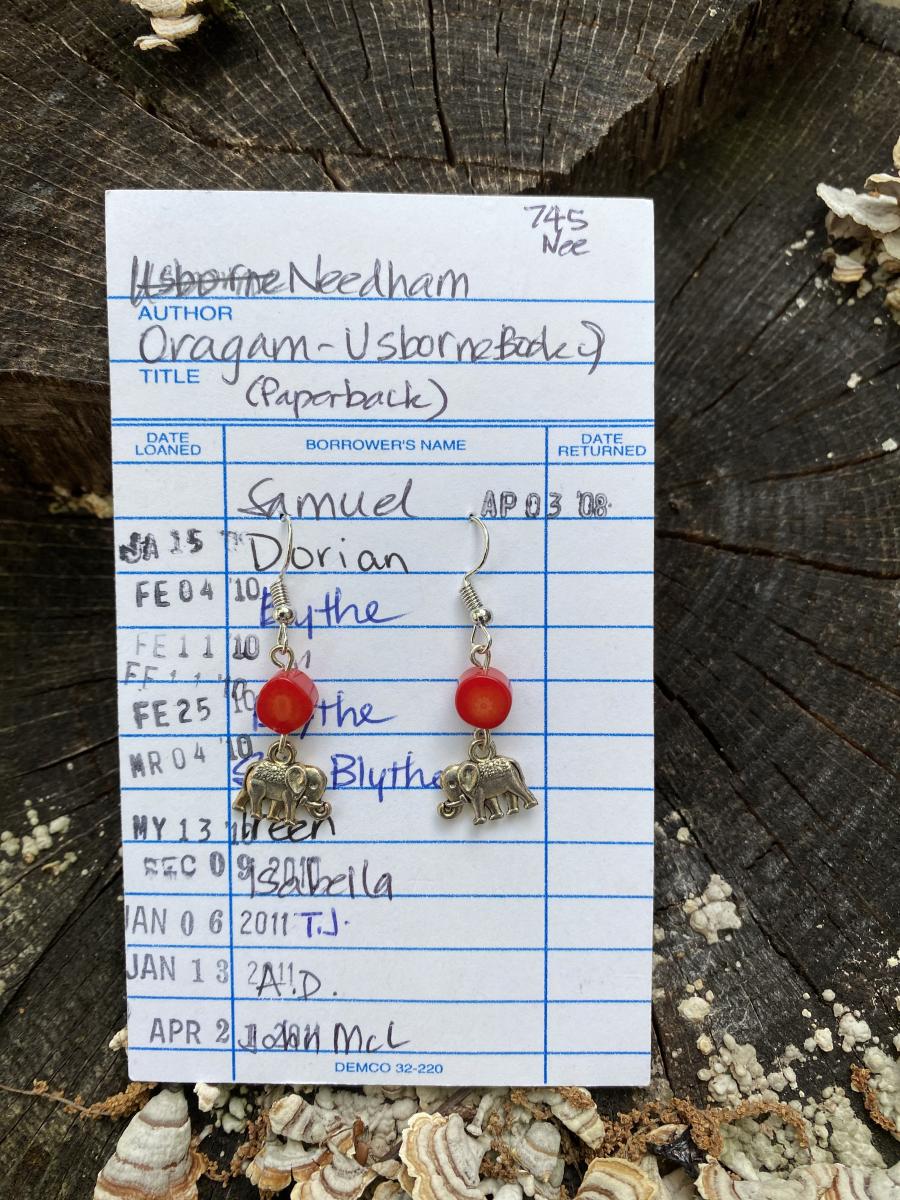 745
Nee
Usborne Needham
AUTHOR
Oragam - Usborne Book
TITLE
(Paperback)
DATE LOANED BORROWER'S NAME DATE RETURNED
Samuel AP 03 '08
JA 15 Dorian
FE 04 '10 Blythe
FE 11 '10
FE 11
FE 25 '10 Blythe
MR 04 '10 Blythe
MY 13 '10 reen
DEC 09 2010 Isabella
JAN 06 2011 T.J.
JAN 13 2011 A.D.
APR 21 2011 John McL
DEMCO 32-220